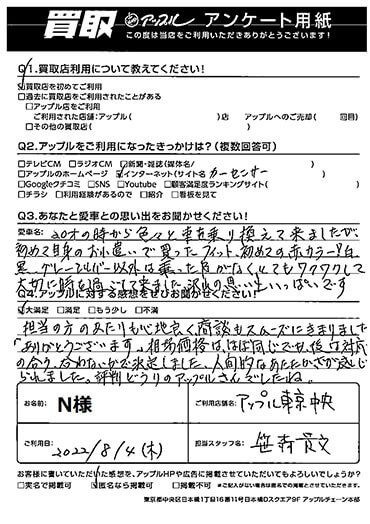 買取 アップル アンケート用紙
この度は当店をご利用いただきありがとうございます!
Q1.買取店利用について教えてください!
☑買取店を初めてご利用
□過去に買取店をご利用されたことがある
□アップル店をご利用
ご利用された店舗:アップル( )店 アップルへのご売却( 回目)
□その他の買取店( )
Q2.アップルをご利用になったきっかけは?(複数回答可)
□テレビCM □ラジオCM □新聞・雑誌(媒体名/ )
□アップルのホームページ ☑インターネット(サイト名 カーセンサー )
□Googleクチコミ □SNS □Youtube □顧客満足度ランキングサイト( )
□チラシ □利用経験があるので □紹介 □看板を見て
Q3.あなたと愛車との思い出をお聞かせください!
愛車名: 20才の時から色々と車を乗り換えて来ましたが、
初めて自身のお小遣いで買ったフィット、初めての赤カラー!白
黒、グレー、シルバー以外は乗った事がなくとてもワクワクして
大切に時を過ごして来ました。沢山の思い出いっぱいです
Q4.アップルに対する感想をぜひお聞かせください!
☑大満足 □満足 □もう少し □不満
担当の方のあたりも心地良く商談もスムーズにきまりました
「ありがとうございます。」相場価格はほぼ同じですが、後は対応
の合う、合わないかで決定しました、人間的なあたたかさが感じ
られました。評判どうりのアップルさんでしたね。
お名前: N様
ご利用店舗名: アップル東京中央
ご利用日: 2022/8/4(木)
担当スタッフ名: 笹森貴文
お客様に書いていただいた感想を、アップルHPや広告に掲載させていただいてもよろしいでしょうか?
□実名で掲載可 ☑匿名なら掲載可 □掲載不可 ※ご記入がない場合は匿名での掲載とさせていただきます。
東京都中央区日本橋1丁目16番11号日本橋Dスクエア9F アップルチェーン本部